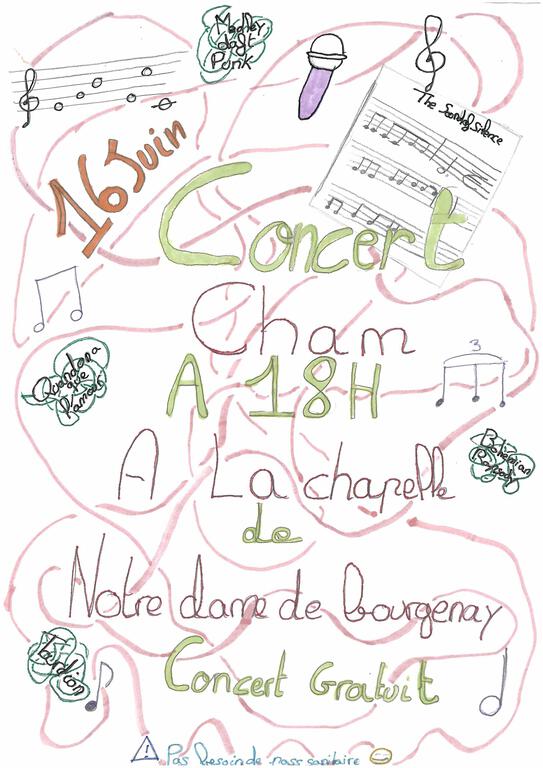 Medley
daft
Punk
The Sound of Silence
16 Juin
Concert
Cham
A 18H
Quand on a
que
l'amour
3
Bohémian
Rapsody
A La chapelle
de
Notre dame de bourgenay
Tourdion
Concert Gratuit
! Pas besoin de pass sanitaire